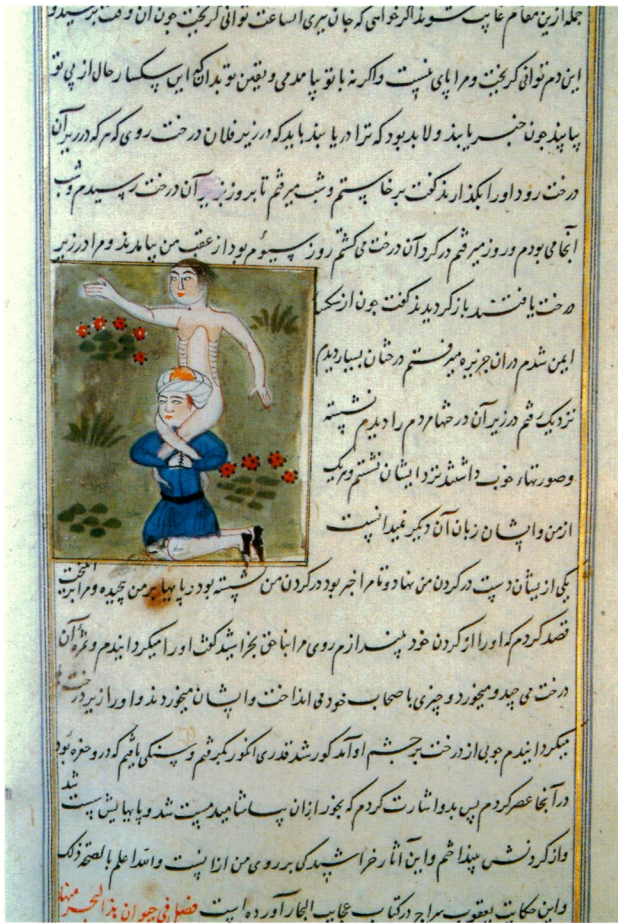 جمله ازین مقام غایب شوند اگر خواهی که جان بری الساعت توانی کریخت چون آن وقت برسید و
این دم توانی کریخت و مرا پای نیست واکر نه با تو بیامدمی و یقین تو بدان که این سکسار حال از پی تو
بیایند چون خبر یابند و لابد بود که ترا دریابند باید که در زیر فلان درخت روی که هر که در زیر آن
درخت رود اورا بکذارند کفت برخاستم و شب میرفتم تا بروز بزیر آن درخت رسیدم و شب
آنجا می بودم و روز میرفتم در کرد آن درخت می کشتم روز سیوم بود از عقب من بیامدند و مرا در زیر
درخت یافتند باز کردیدند کفت چون از سکسار
ایمن شدم در آن جزیره میرفتم درختان بسیار دیدم
نزدیک رفتم در زیر آن درختها مردم را دیدم نشسته
وصورتهاء خوب داشتند نزد ایشان نشستم و یک
از من و ایشان زبان آن دیکر نمیدانست
یکی از یشان دست در کردن من نهاد و تا مرا خبر بود در کردن من نشسته بود و پایها بر من پیچیده و مرا برانکیخت
قصد کردم که اورا از کردن خود بیندازم روی مرا بناخن بخراشید کفت اورا میکردانیدم و ثمرهٔ آن
درخت می چید و میخورد و چیزی با صحاب خود می انداخت و ایشان میخوردند و اورا زیر درختها
میکردانیدم چوبی از درخت بر چشم او آمد کور شد قدری انکور بکرفتم و سنکی یافتم که در و حفره بود
در آنجا عصر کردم پس بدو اشارت کردم که بخور از ان بیاشامید مست شد و پایهایش سست شد
و از کردنش بینداختم و این آثار خراشیدکی بر روی من از انست والله اعلم بالصحة ذلک
و این حکایت یعقوب سراج در کتاب عجایب البحار آورده است فصل فی حیوان هذا البحر منها